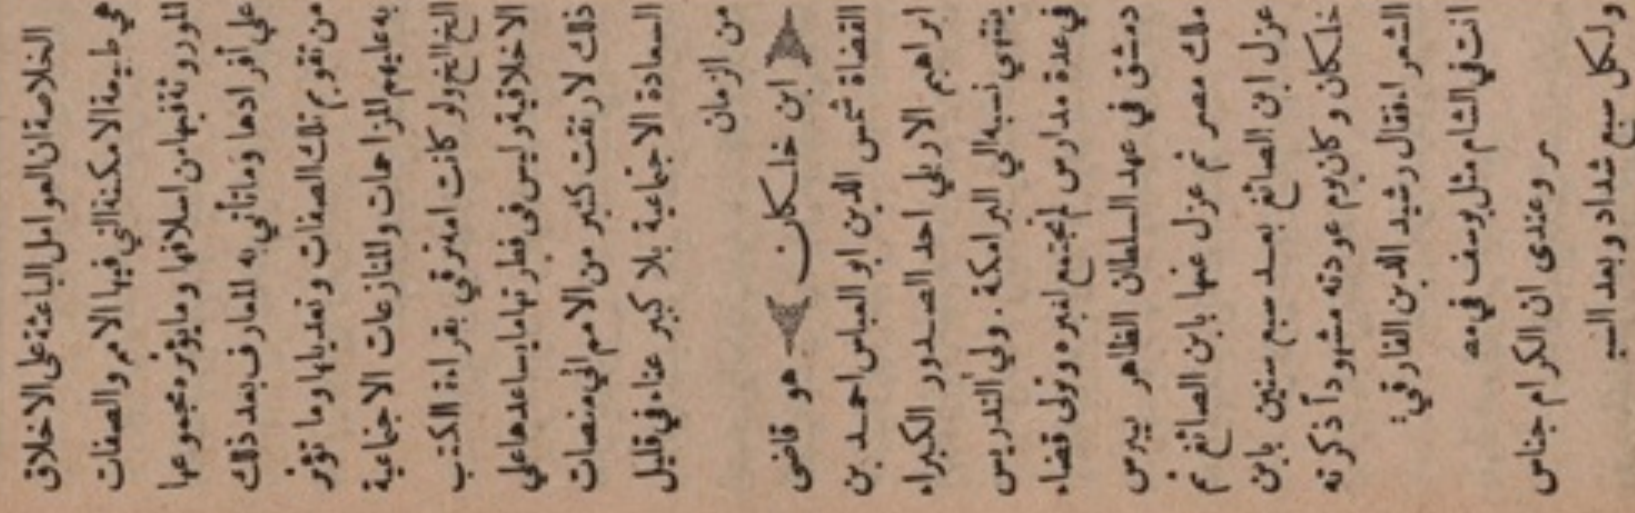 الخلاصة ان العوامل الباعثة على الاخلاق
هي طبيعة الامكنة التي فيها الامم والصفات
للوروثة فيها من اسلافها وما يؤثره مجموعها
علي أفرادها وما تأتي به المعارف بعد ذلك
من تقويم تلك الصفات وتعديلها وما تؤثر
به عليهم المزاحمات والمنازعات الاجتماعية
الخ الخ ولو كانت امة ترقي بقراءة الكتب
الاخلاقية وليس في فطرتها ما يساعدها علي
ذلك لارتقت كثير من الامم الي منصات
السعادة الاجتماعية بلا كبير عناء في قليل
من الزمان
﴿ ابن خلكان ﴾ هو قاضى
القضاة شمس الدين ابو العباس احمد بن
ابراهيم الاربلي احد الصدور الكبراء
ينتهي نسبه الي البرامكة . ولي التدريس
في عدة مدارس لم تجتمع لغيره وتولى قضاء
دمشق في عهد السلطان الظاهر بيبرس
ملك مصر ثم عزل عنها بابن الصائغ ثم
عزل ابن الصائغ بعد سبع سنين بابن
خلكان وكان يوم عودته مشهوداً ذكرته
الشعراء فقال رشيد الدين الفارقي:
انت في الشام مثل يوسف في مصـ
ـر وعندى ان الكرام جناس
ولكل سبع شداد وبعد الـ